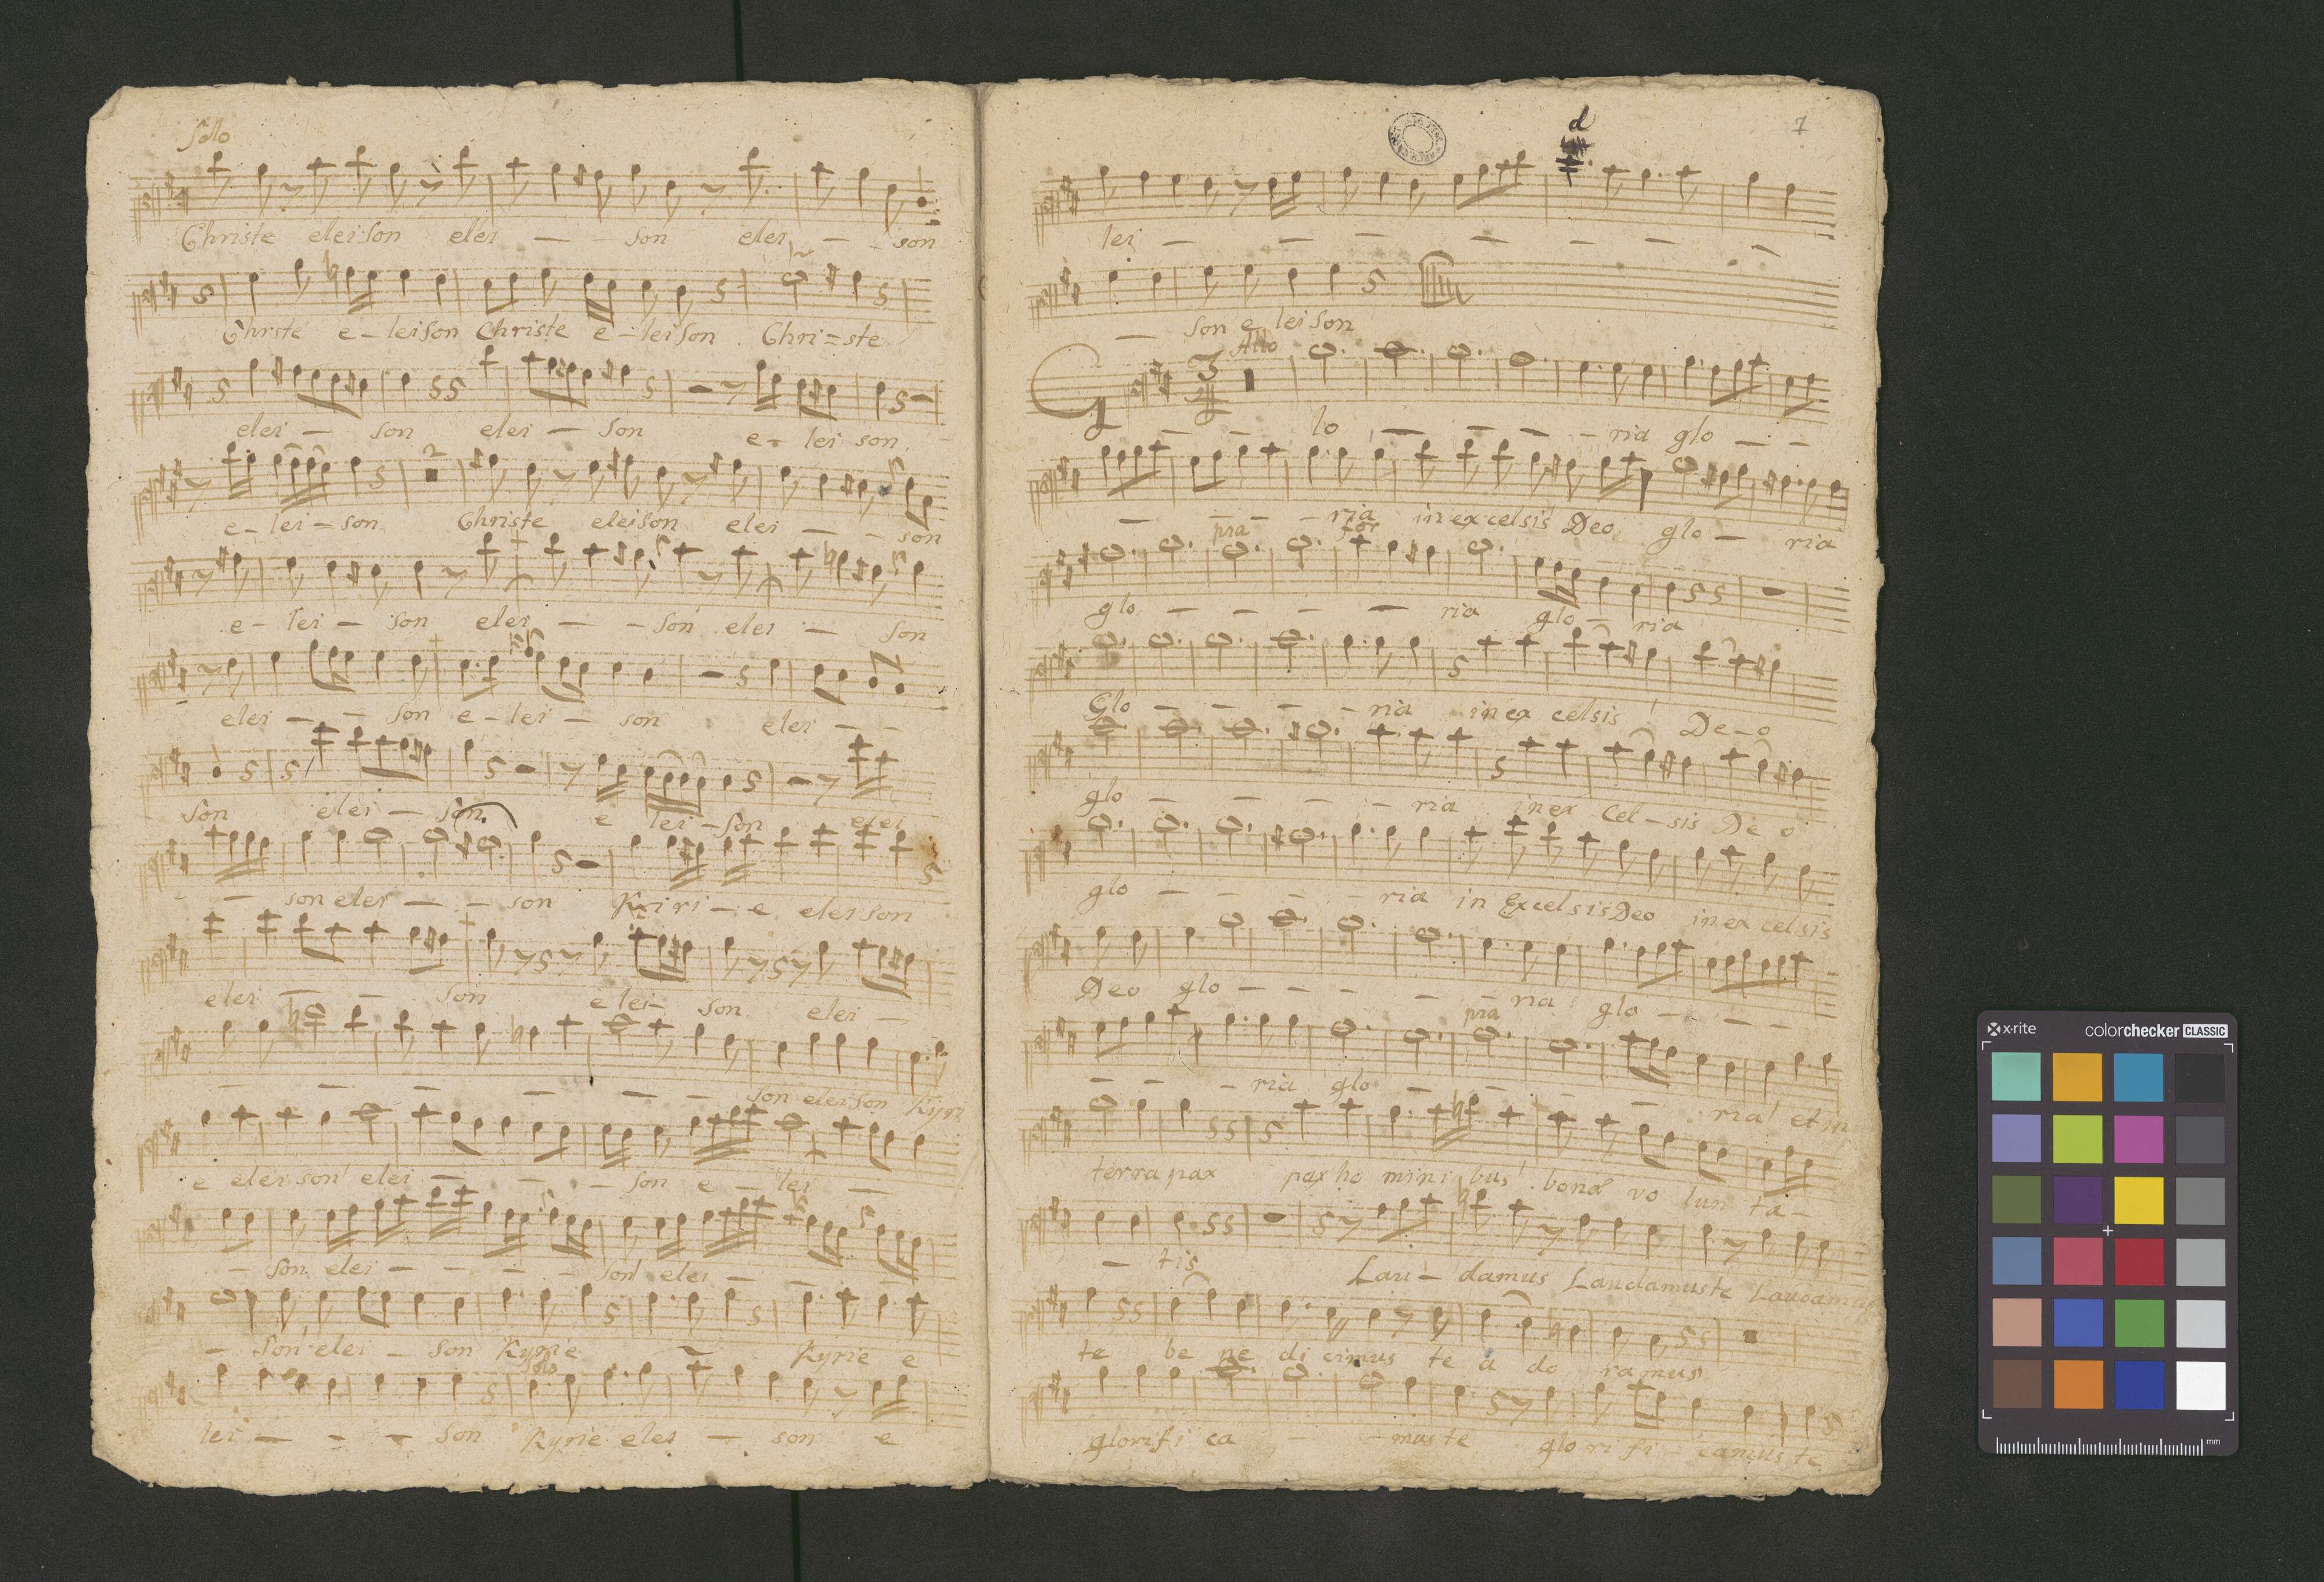 Solo
Christe eleison elei — son elei — - son
Christe e - leison Christe e - leison Chri = ste
elei — son elei — son e - lei son
2
e - lei - son Christe eleison elei — - son
e - lei — son elei — - son elei — son
elei — - son e - lei - son elei - -
son elei — son e lei - son elei
— son elei — - son Kyri - e elei son
elei — - son e lei - son elei —
— — — — — - son eleison Kyri
e elei son elei — - - son e - lei —
- son elei — - - - son elei — -
- son elei - son Kyrie Kyrie e
Solo
lei — - - son Kyrie elei — son e
1
d
lei — — — — — — —
— son e lei son
Allo
3
G - - lo — - — - ria glo — -
— - - - ria in excelsis Deo glo — ria
pia for
glo — - - — ria glo - ria
Glo — - - - ria in ex celsis De - o
glo — - - - ria in ex cel - sis De o
glo — - - - ria in Excelsis Deo in ex celsis
Deo glo — - - - - ria glo - - - -
pia
- - - ria glo — - - ria et in
terra pax pax ho mini bus bonæ vo lun ta -
- tis Lau - damus Laudamus te Laudamus
te be ne di cimus te a do ramus
glorifi ca - mus te glo ri fi - camus te
x-rite
colorchecker CLASSIC
mm